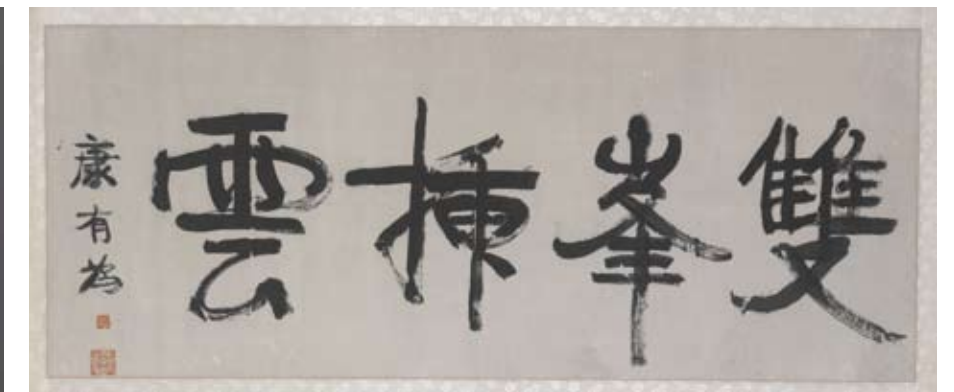 雙峯揷雲
康有為